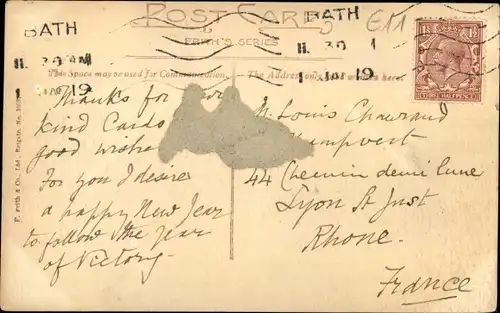 BATH
11. 30 AM
1 JA 19
BATH
11. 30
1 JA 19
5
£11
POST CARD
FRITH'S SERIES
This Space may be used for Communication.
The Address only to be written here.
THREE HALF PENCE
F. Frith & Co., Ltd., Reigate. No.
Thanks for your
kind Cards
good wishes
For you I desire
a happy New Year
to follow the year
of Victory.
M. Louis
44 Chemin demi lune
Lyon St Just
Rhone.
France